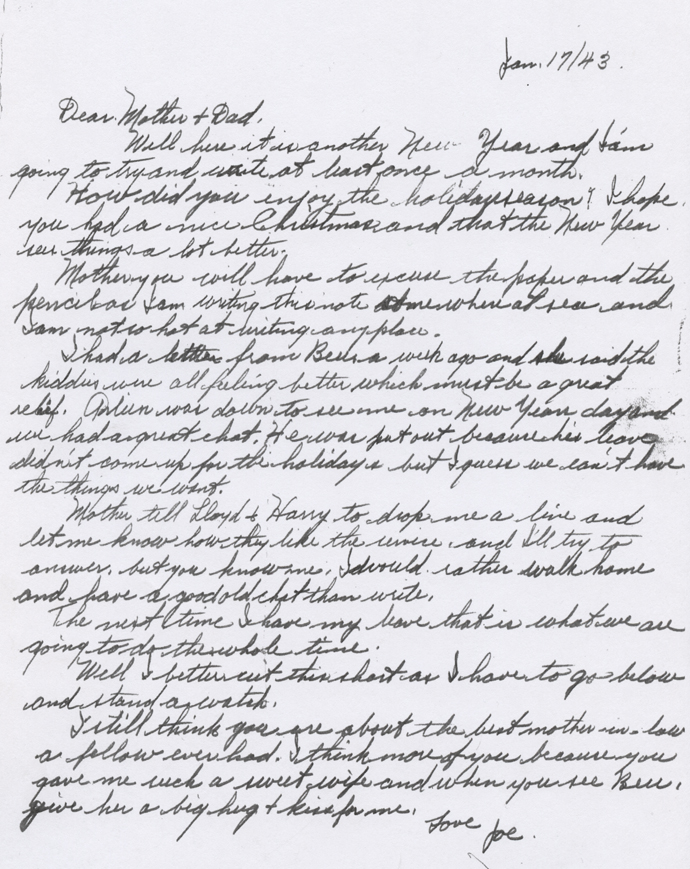 Jan. 17/43.
Dear Mother + Dad.
Well here it is another New Year and I am
going to try and write at least once a month.
How did you enjoy the holiday season? I hope
you had a nice Christmas and that the New Year
sees things a lot better.
Mother you will have to excuse the paper and the
pencil as I am writing this note somewhere at sea and
I am not so hot at writing any place.
I had a letter from Bea a week ago and she said the
kiddies were all feeling better which must be a great
relief. was down to see me on New Year day and
we had a great chat. He was put out because his leave
didn't come up for the holidays but I guess we can't have
the things we want.
Mother tell Lloyd & Harry to drop me a line and
let me know how they like the service. and I'll try to
answer. but you know me. I would rather walk home
and have a good old chat than write.
The next time I have my leave that is what we are
going to do the whole time.
Well I better cut this short as I have to go below
and stand a watch.
I still think you are about the best mother-in-law
a fellow ever had. I think more of you because you
gave me such a sweet wife and when you see Bea.
give her a big hug + kiss for me.
Love
Joe.